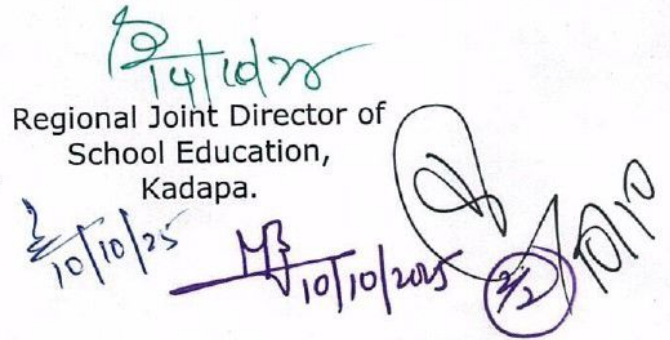 14/10/25
Regional Joint Director of
School Education,
Kadapa.
10/10/25
10/10/2025
10/10
2/2